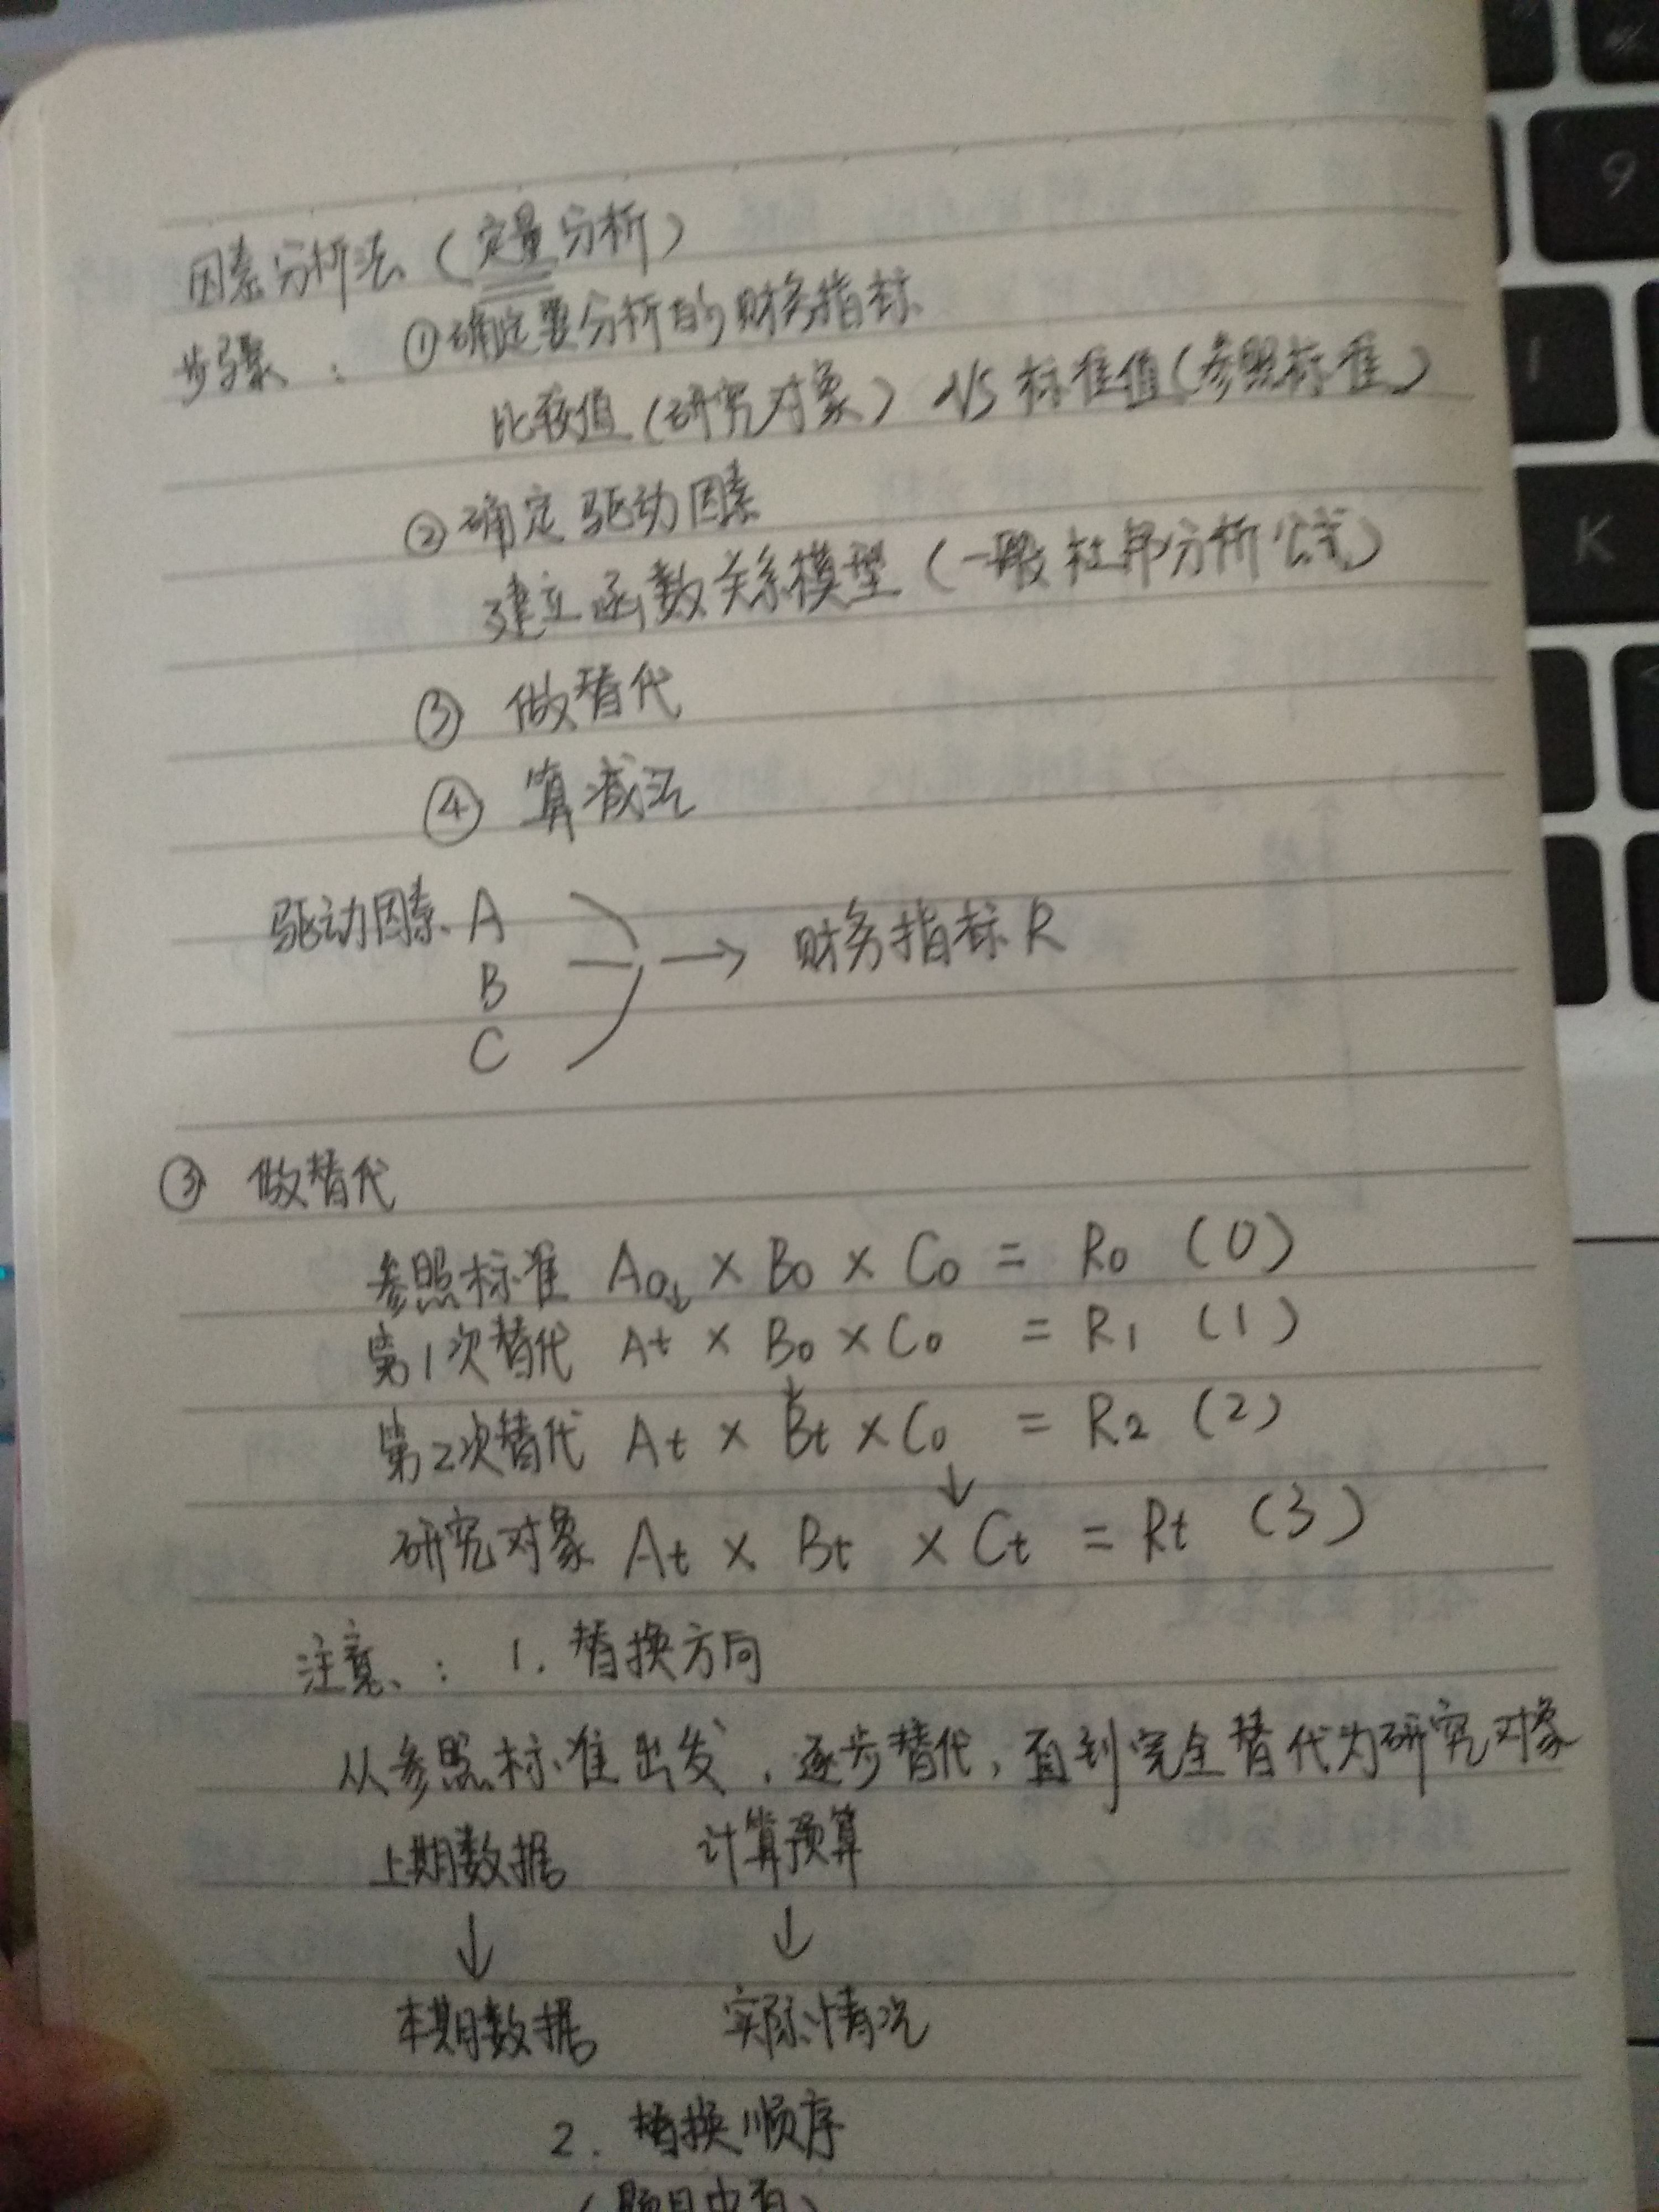 因素分析法（定量分析）
步骤：①确定要分析的财务指标
比较值（研究对象）VS 标准值（参照标准）
②确定驱动因素
建立函数关系模型（一般杜邦分析公式）
③ 做替代
④ 算减法
驱动因素 A → 财务指标 R
B
C
③ 做替代
参照标准 A0 × B0 × C0 = R0 (0)
第1次替代 At × B0 × C0 = R1 (1)
第2次替代 At × Bt × C0 = R2 (2)
研究对象 At × Bt × Ct = Rt (3)
注意：1. 替换方向
从参照标准出发，逐步替代，直到完全替代为研究对象
上期数据 计算预算
↓ ↓
本期数据 实际情况
2. 替换顺序
（题目中有）
9
I
K